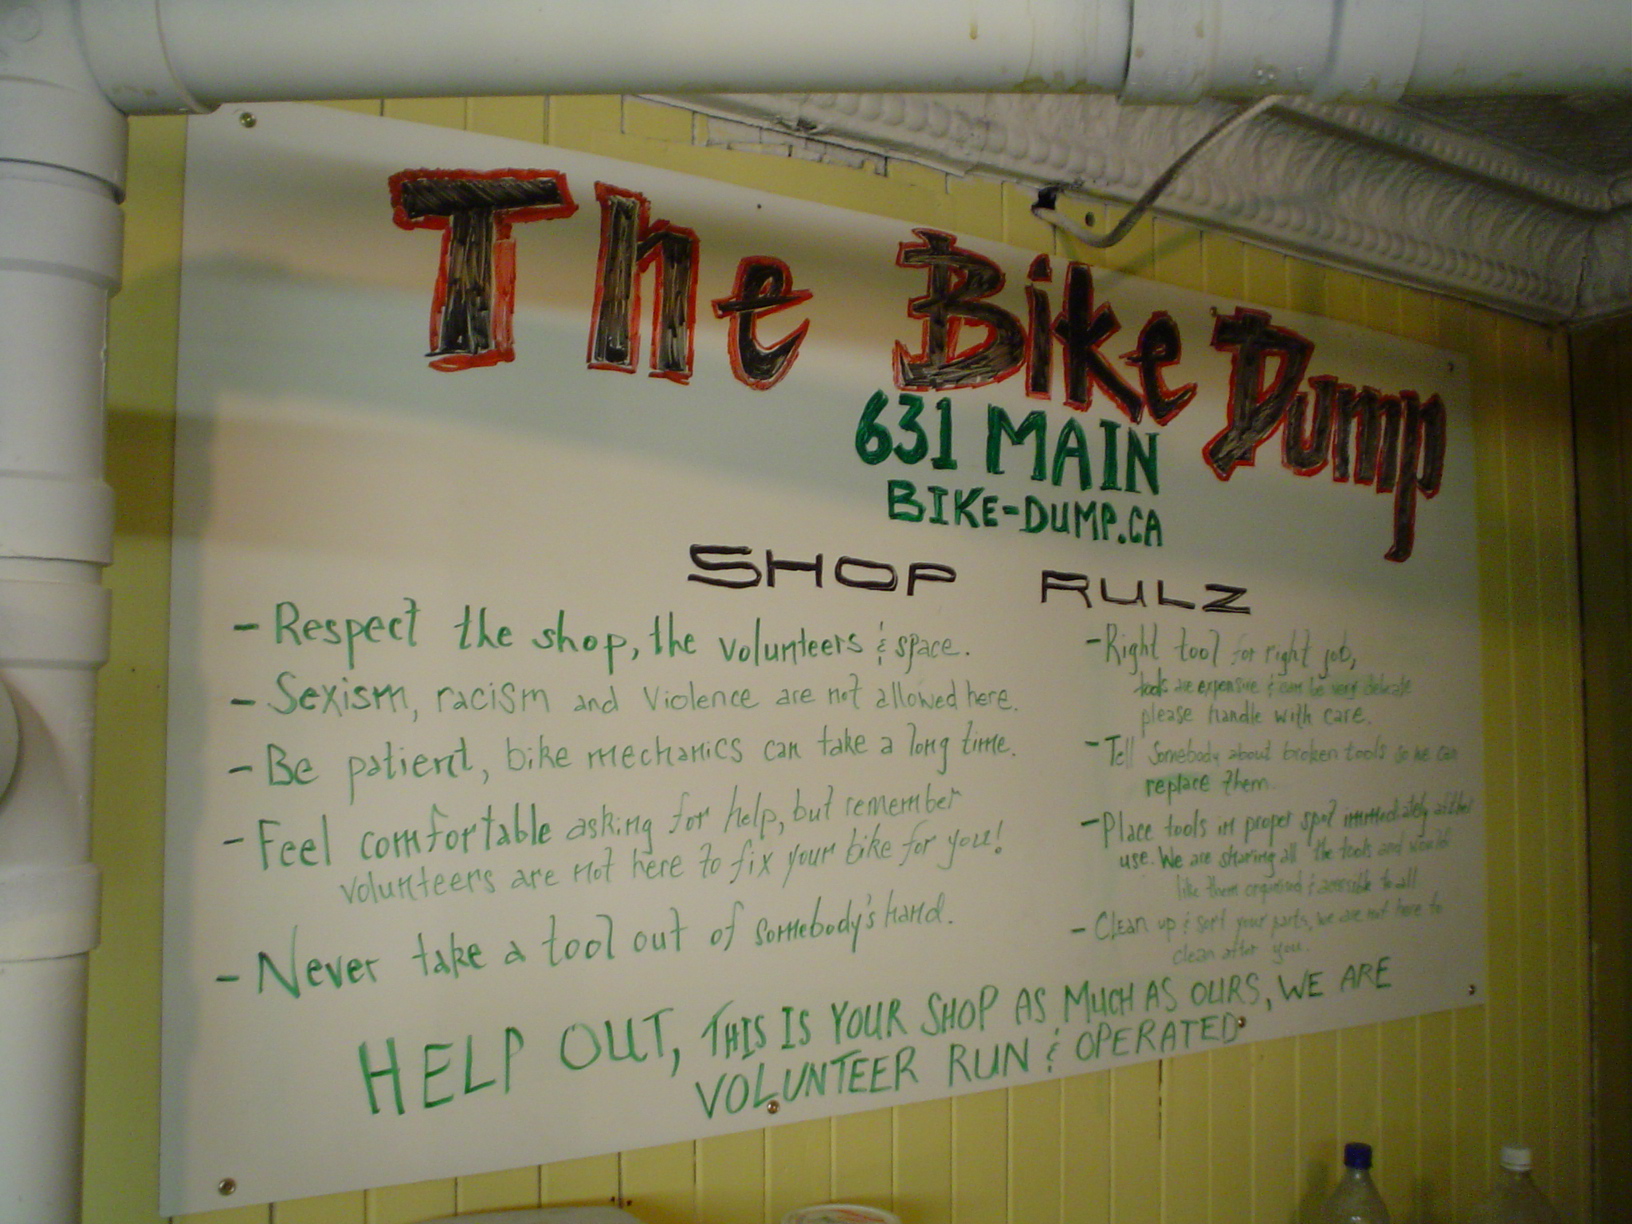 The Bike Dump
631 MAIN
BIKE-DUMP.CA
SHOP RULZ
- Respect the shop, the volunteers & space.
- Sexism, racism and violence are not allowed here.
- Be patient, bike mechanics can take a long time.
- Feel comfortable asking for help, but remember
volunteers are not here to fix your bike for you!
- Never take a tool out of somebody's hand.
- Right tool for right job,
tools are expensive & can be very delicate
please handle with care.
- Tell somebody about broken tools so we can
replace them.
- Place tools in proper spot immediately after
use. We are sharing all the tools and would
like them organized & accessible to all
- Clean up & sort your parts, we are not here to
clean after you.
HELP OUT, THIS IS YOUR SHOP AS MUCH AS OURS, WE ARE
VOLUNTEER RUN & OPERATED